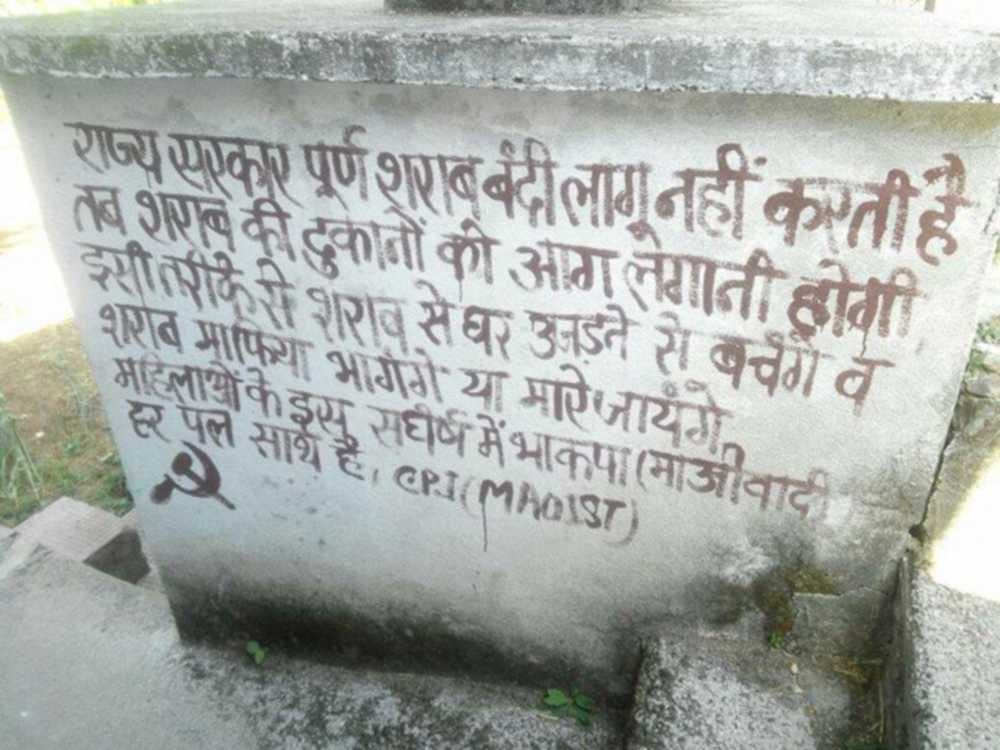 राज्य सरकार पूर्ण शराब बंदी लागू नहीं करती है
तब शराब की दुकानों को आग लगानी होगी
इसी तरीके से शराब से घर उजड़ने से बचेंगे व
शराब माफिया भागेंगे या मारे जायेंगे,
महिलाओं के इस संघीर्ष में भाकपा (माओवादी
हर पल साथ है, CPI (MAOIST)